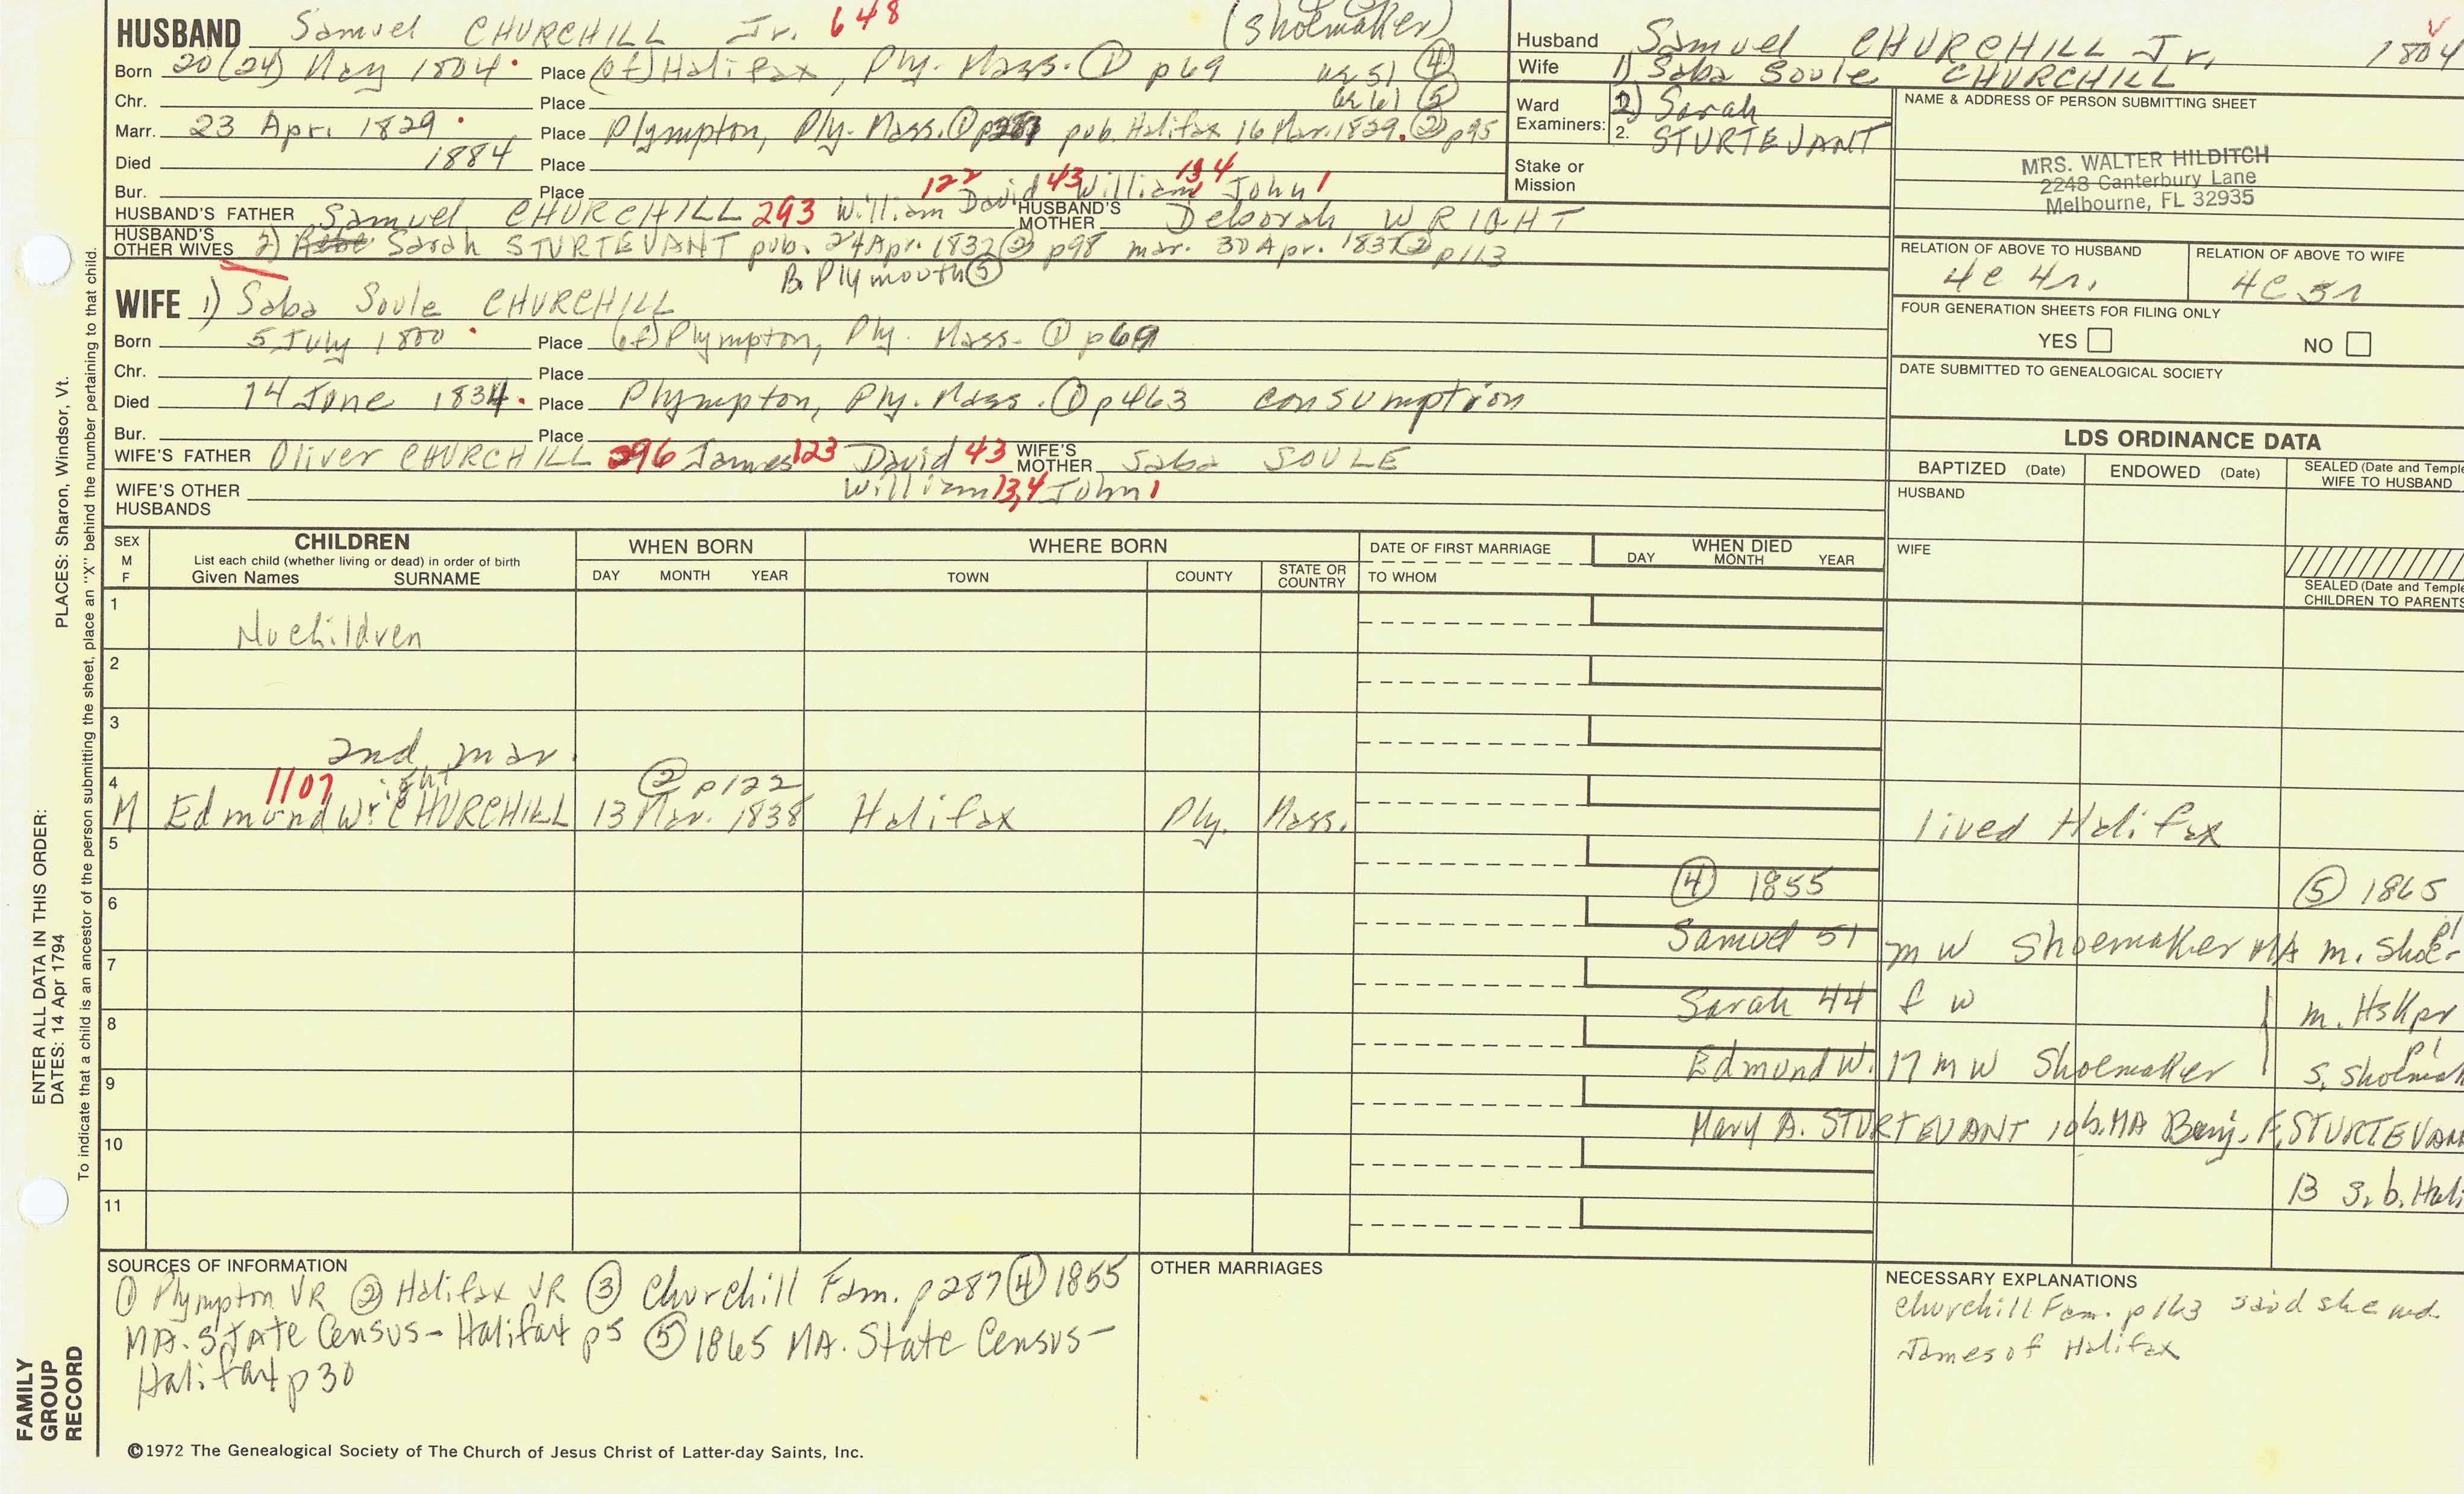 HUSBAND Samuel CHURCHILL Jr. 648 (Shoemaker)
Born 20(24) May 1804. Place (of) Halifax, Ply. Mass. ① p69 ④
Chr. Place ⑤
Marr. 23 Apr. 1829. Place Plympton, Ply. Mass. ① pub. Halifax 16 Mar. 1829. ② p95
Died 1884 Place
Bur. Place
HUSBAND'S FATHER Samuel CHURCHILL 293 William 122 David 43 William 13,4 John 1 HUSBAND'S MOTHER Deborah WRIGHT
HUSBAND'S OTHER WIVES 2) Sarah STURTEVANT pub. 24 Apr. 1837 ② p98 mar. 30 Apr. 1837 ② p113
B. Plymouth ⑤
WIFE 1) Saba Soule CHURCHILL
Born 5 July 1800. Place (of) Plympton, Ply. Mass. ① p69
Chr. Place
Died 14 June 1834. Place Plympton, Ply. Mass. ① p463 consumption
Bur. Place
WIFE'S FATHER Oliver CHURCHILL 296 James 123 David 43 WIFE'S MOTHER Saba SOULE
William 13,4 John 1
WIFE'S OTHER HUSBANDS
Husband Samuel CHURCHILL Jr. 1804
Wife 1) Saba Soule CHURCHILL
Ward Examiners: 2) Sarah
2. STURTEVANT
Stake or Mission
NAME & ADDRESS OF PERSON SUBMITTING SHEET
MRS. WALTER HILDITCH
2248 Canterbury Lane
Melbourne, FL 32935
RELATION OF ABOVE TO HUSBAND RELATION OF ABOVE TO WIFE
4c 4r. 4c 5r
FOUR GENERATION SHEETS FOR FILING ONLY
YES NO
DATE SUBMITTED TO GENEALOGICAL SOCIETY
LDS ORDINANCE DATA
BAPTIZED (Date) ENDOWED (Date) SEALED (Date and Temple
WIFE TO HUSBAND
HUSBAND
WIFE
SEALED (Date and Temple
CHILDREN TO PARENTS
SEX
M
F
CHILDREN
List each child (whether living or dead) in order of birth
Given Names SURNAME
WHEN BORN
DAY MONTH YEAR
WHERE BORN
TOWN COUNTY STATE OR COUNTRY
DATE OF FIRST MARRIAGE
TO WHOM
WHEN DIED
DAY MONTH YEAR
1
No children
2
3
2nd mar.
4 1107 ight ② p122
M Edmund Wr CHURCHILL 13 Mar. 1838 Halifax Ply. Mass. lived Halifax
5
④ 1855 ⑤ 1865
6
Samuel 51 m w Shoemaker MA m. Shoe-
7
Sarah 44 f w m. Hskpr
8
Edmund W. 17 m w Shoemaker S. Shoemak
9
Mary A. STURTEVANT 10 b. MA Benj. F. STURTEVAN
10
B S. b. Hali
11
SOURCES OF INFORMATION
① Plympton VR ② Halifax VR ③ Churchill Fam. p287 ④ 1855
MA. STATE Census - Halifax p5 ⑤ 1865 MA. State Census -
Halifax p30
OTHER MARRIAGES
NECESSARY EXPLANATIONS
Churchill Fam. p163 said she md.
James of Halifax
©1972 The Genealogical Society of The Church of Jesus Christ of Latter-day Saints, Inc.
FAMILY
GROUP
RECORD
ENTER ALL DATA IN THIS ORDER:
DATES: 14 Apr 1794
PLACES: Sharon, Windsor, Vt.
To indicate that a child is an ancestor of the person submitting the sheet, place an "X" behind the number pertaining to that child.